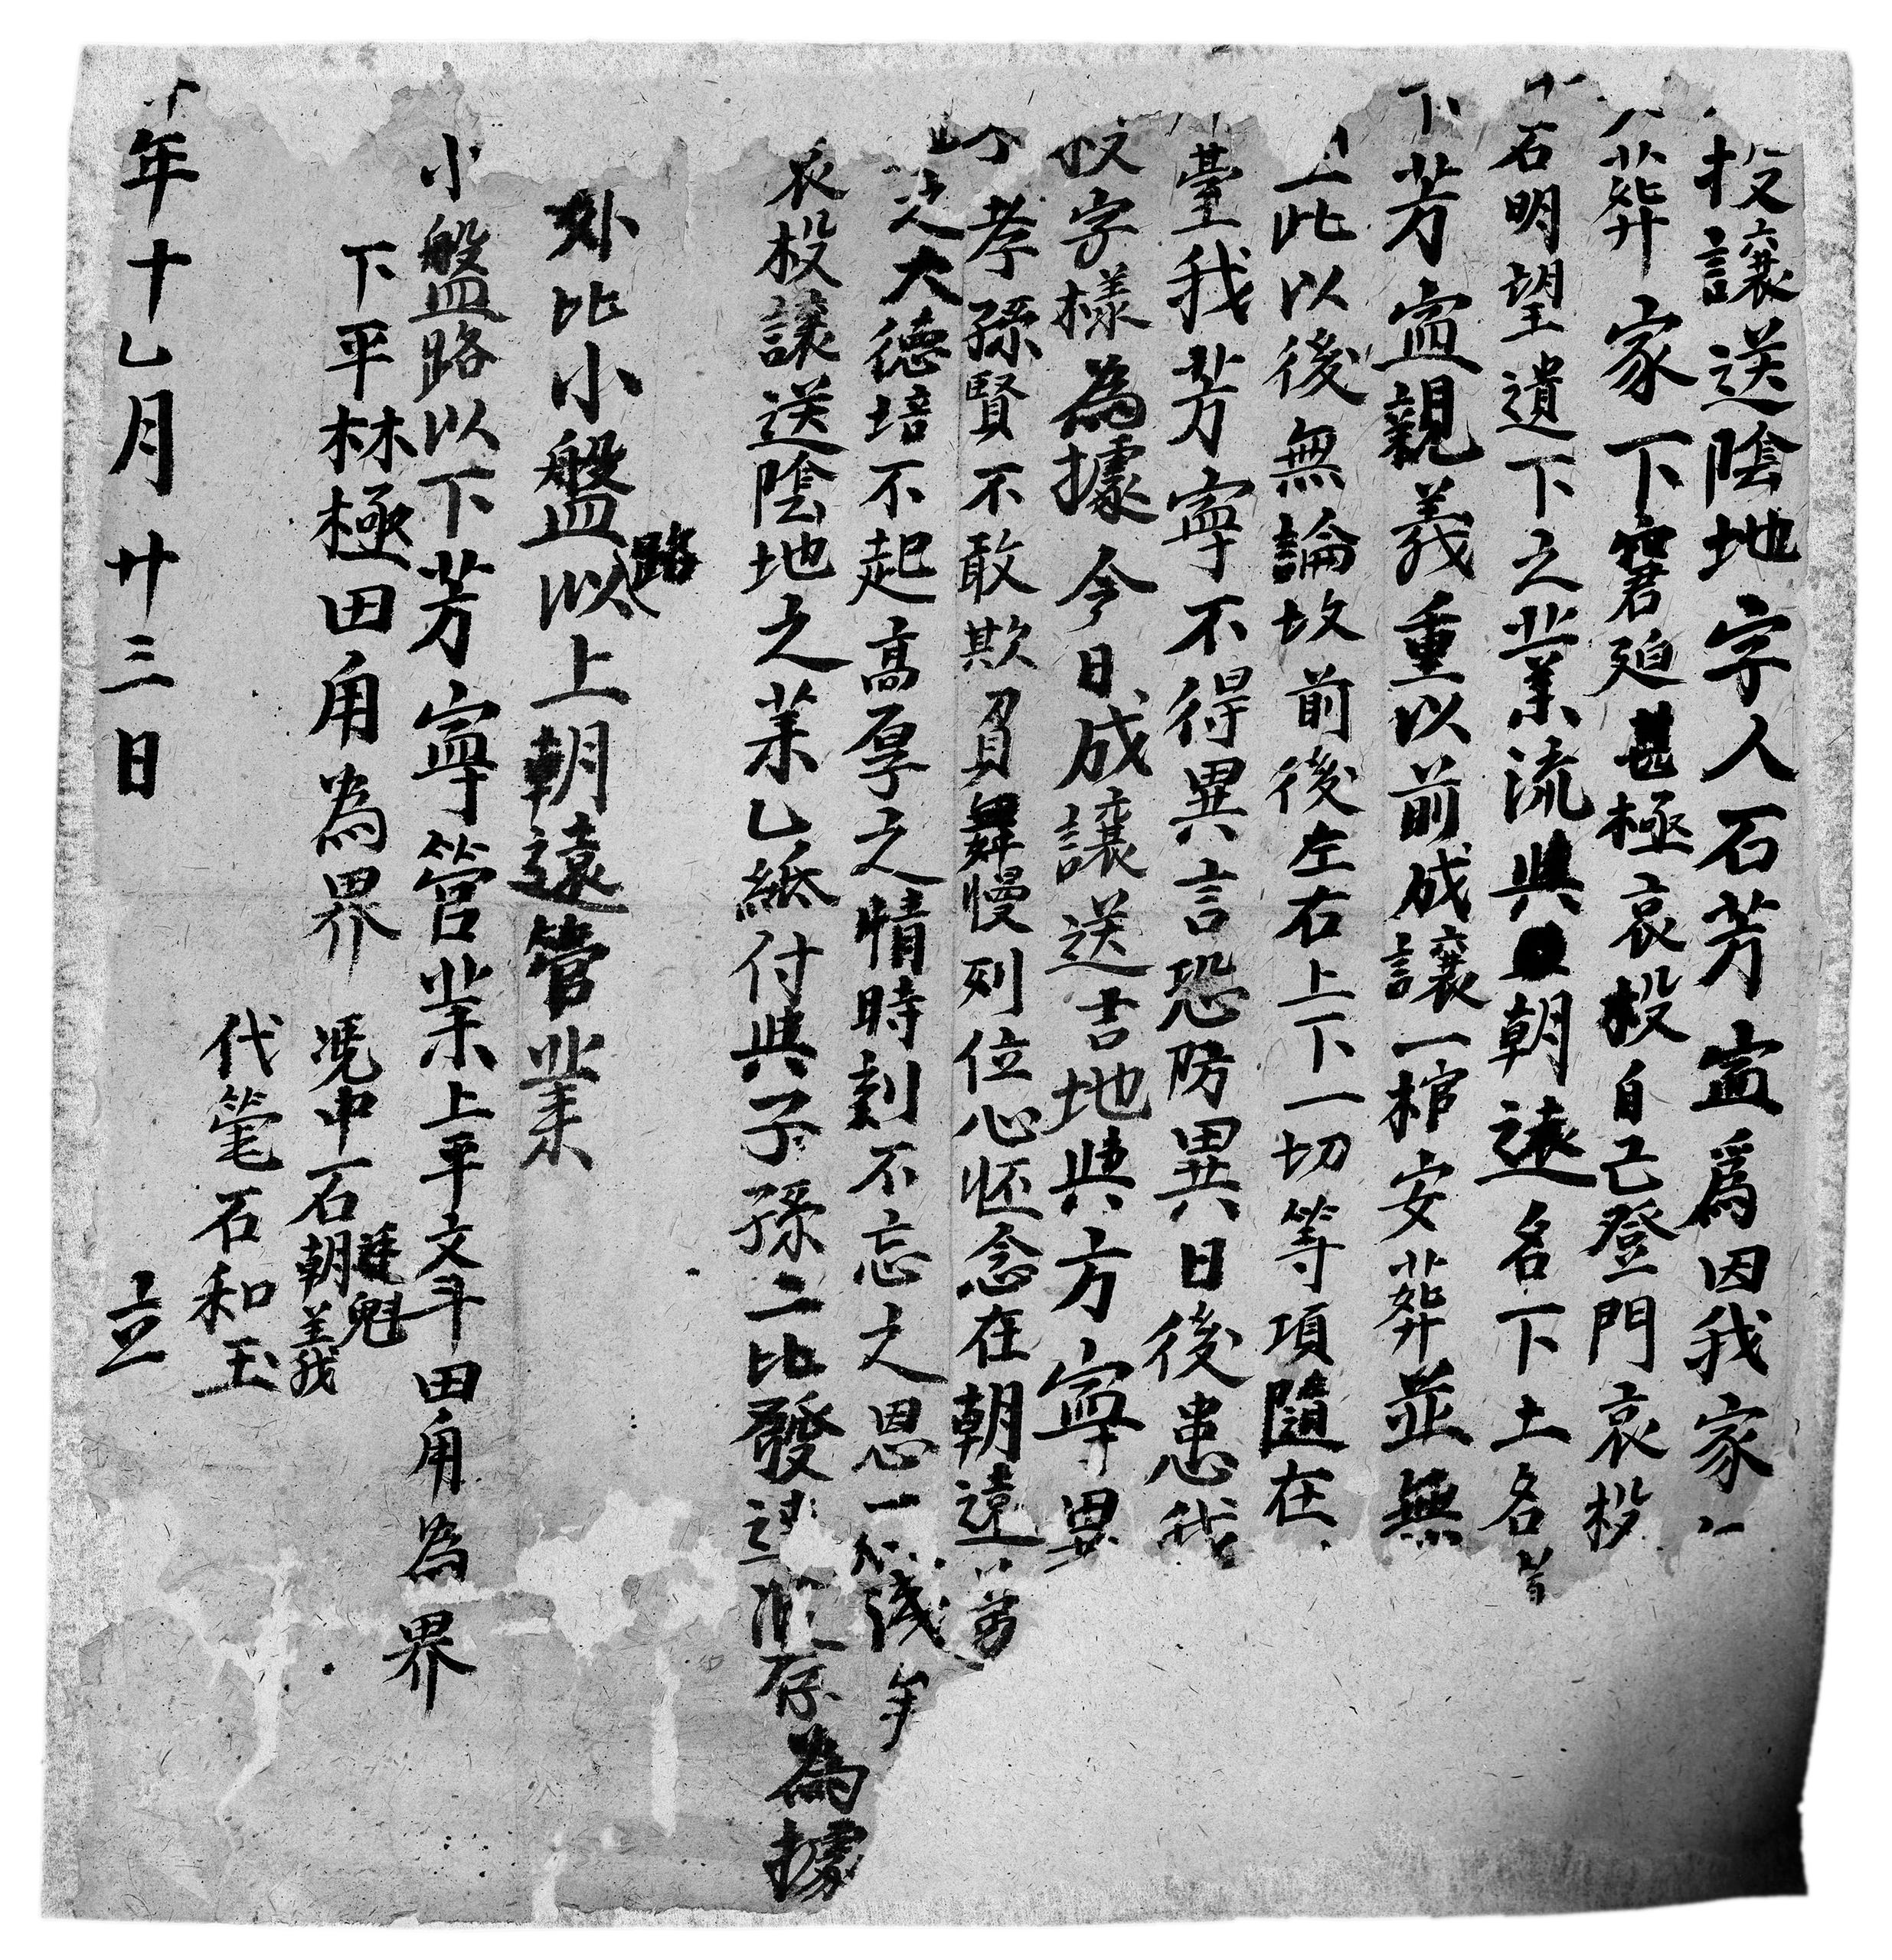 投讓送陰地字人石芳寍爲因我家
葬家下窘廹甚極哀投自己登門哀投
石明望遺下之業流與朝遠名下土名
下芳寍親義重以前成讓一棺安葬並無
此以後無論坟前後左右上下一切等項隨在
臺我芳寧不得異言恐防異日後患我
投字樣為據今日成讓送吉地與方寧異
孝孫賢不敢欺負舞慢列位心怀念在朝遠
之大德培不起高厚之情時刻不忘之恩一
哀投讓送陰地之業乙紙付與子孫二比發達 存為據
外比小盤路以上朝遠管業
小盤路以下芳寧管業上平文斗田角為界
下平林極田角為界 凴中石朝義 廷魁
代筆石和玉
年十乙月廿三日 立